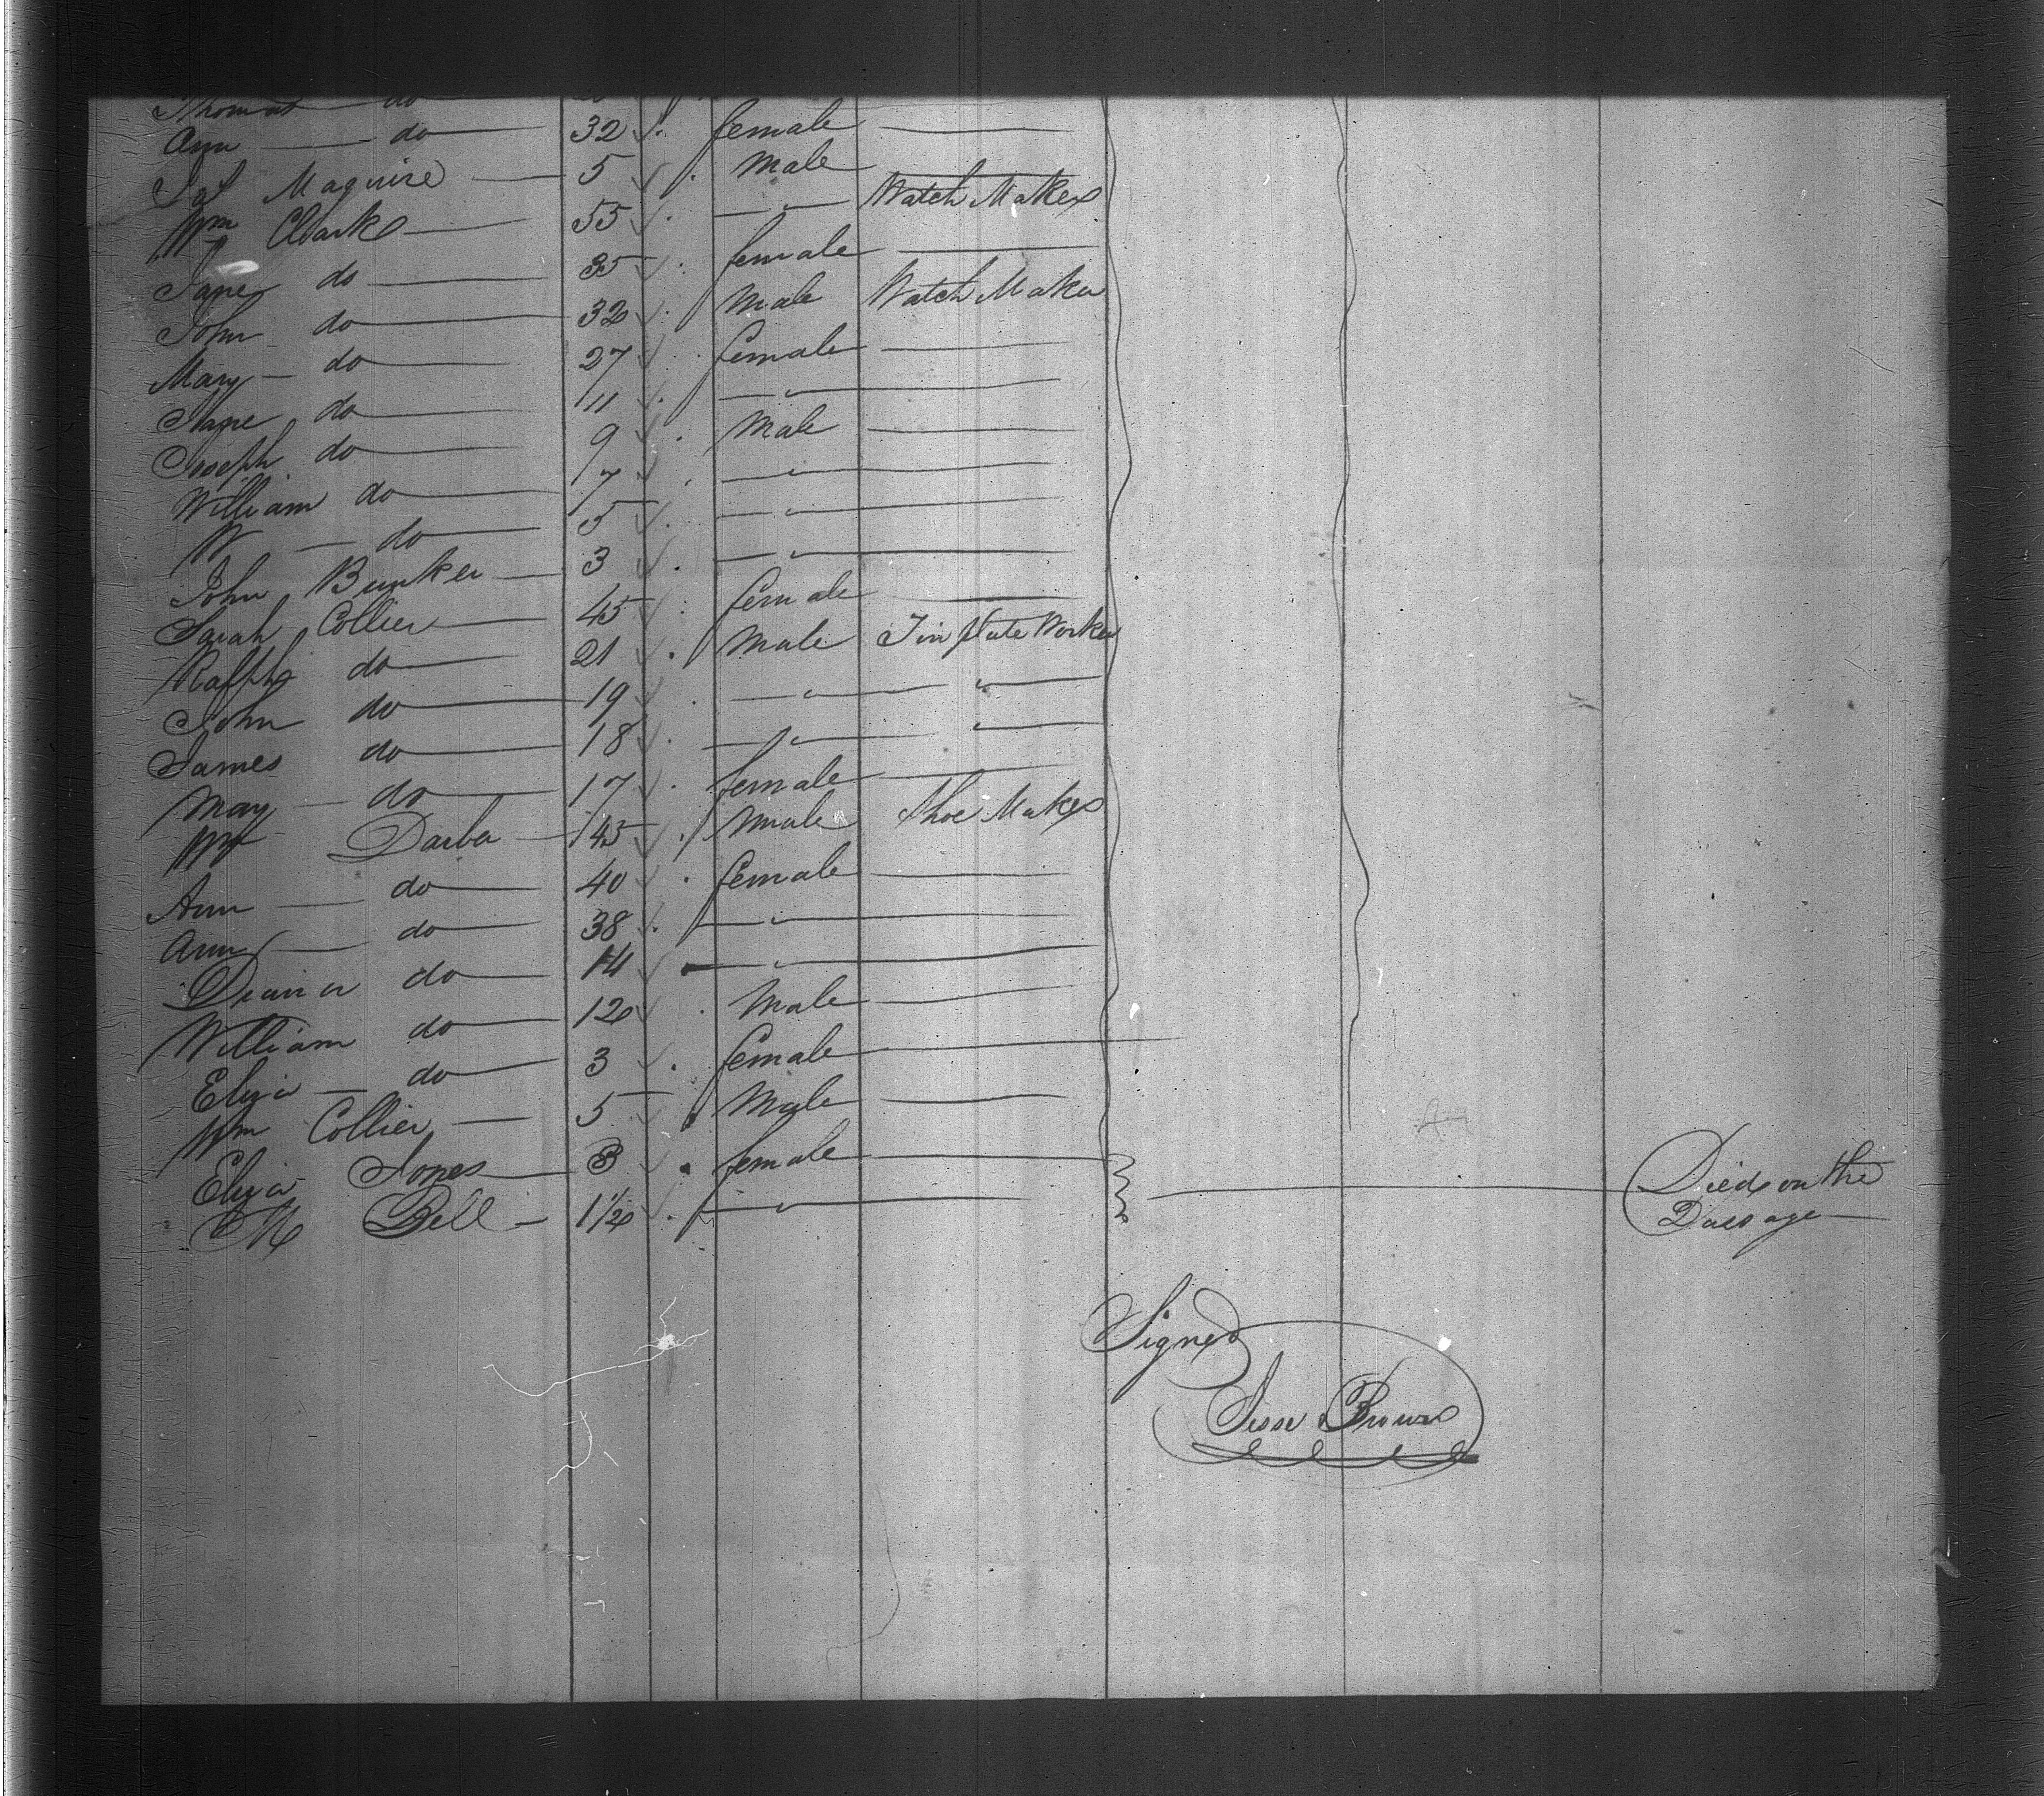 Thomas do
Ann — do — 32 female —
Jas Maguire — 5 Male —
Wm Clark — 55 — " — Watch Maker
Jane do — 35 female —
John do — 32 Male Watch Maker
Mary — do — 27 female —
Jane do — 11 — " —
Joseph do — 9 Male —
William do — 7 — " —
W — do — 5 — " —
John Bunker — 3 — " —
Sarah Collier — 45 female —
Ralph do — 21 Male Tin plate Worker
John do — 19 — " — " —
James do — 18 — " — " —
May — do — 17 female —
Wm Darba — 45 Male Shoe Maker
Ann — do — 40 female —
Ann — do — 38 — " —
Diana do — 14 — " —
William do — 12 Male —
Eliza — do — 3 female —
Wm Collier — 5 Male —
Eliza Jones — 8 female —
M Bell — 1½ — " — Died on the
Passage —
Signed
Jesse Brown